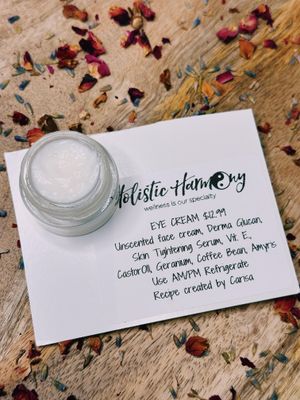 Holistic Harmony
wellness is our specialty
EYE CREAM $12.99
Unscented face cream, Derma Glucan,
Skin Tightening Serum, Vit. E,
CastorOil, Geranium, Coffee Bean, Amyris
Use AM/PM Refrigerate
Recipe created by Carisa